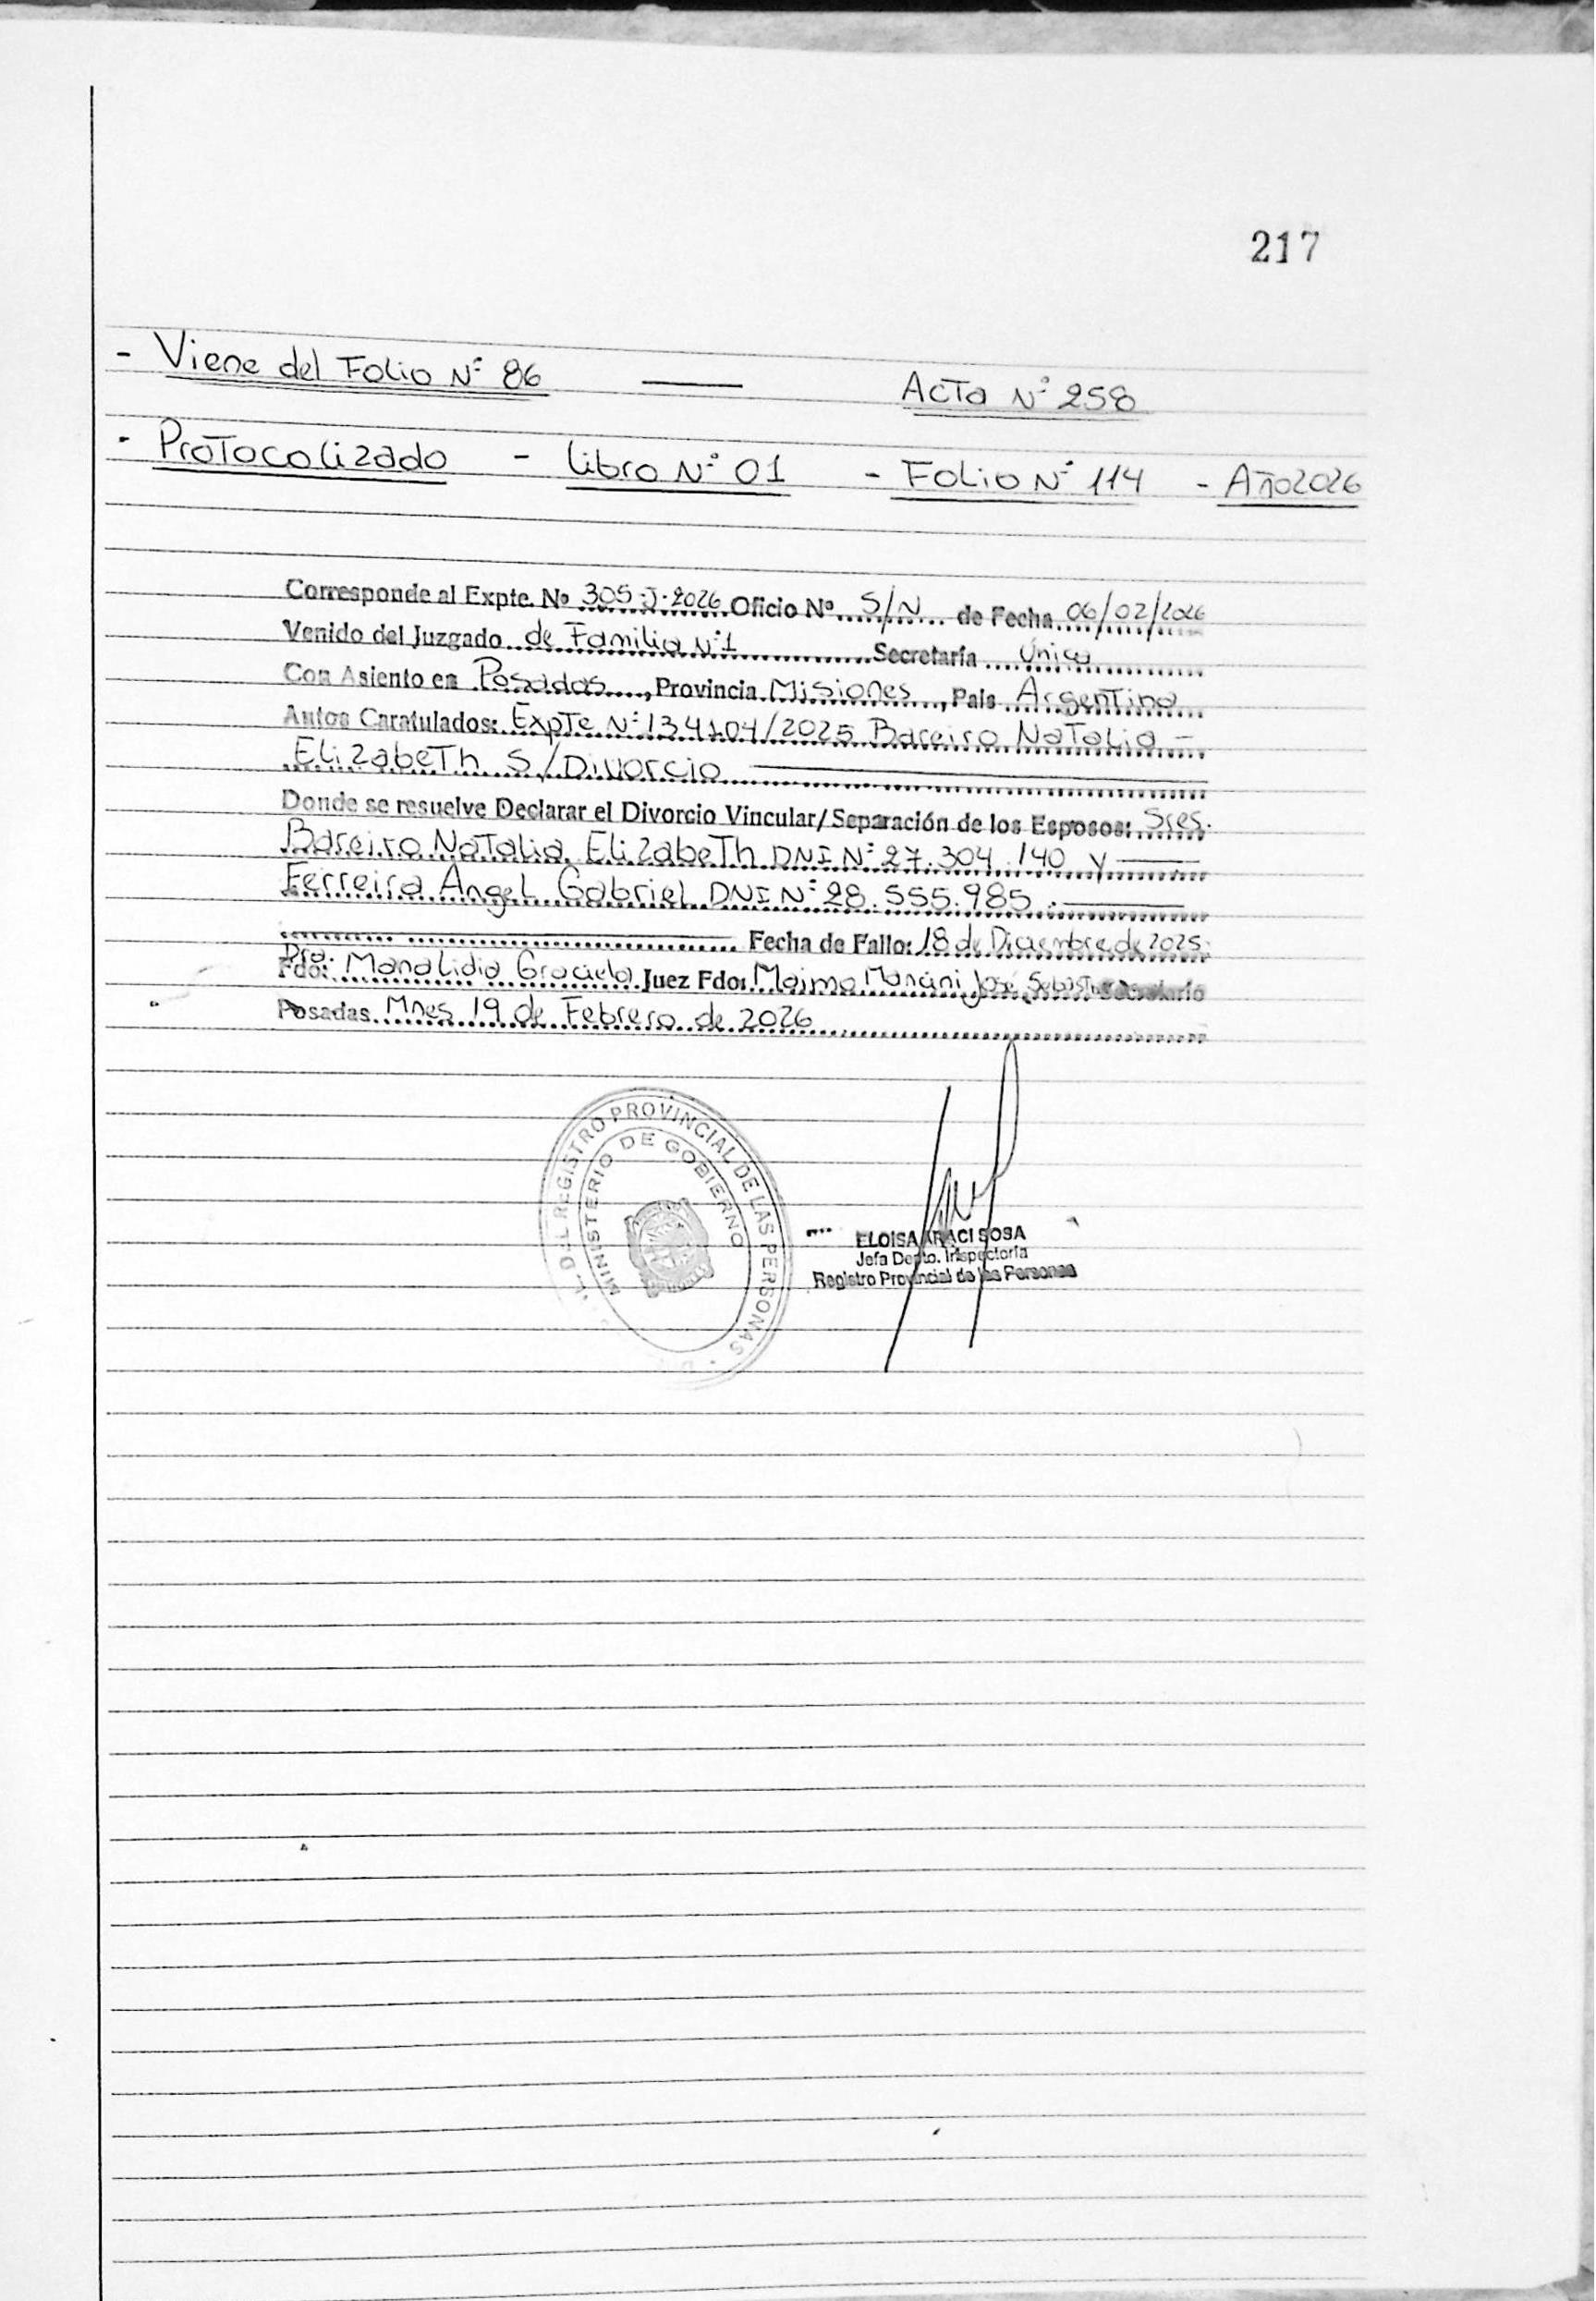 217
- Viene del Folio Nº 86 —— Acta Nº 258
- Protocolizado - Libro Nº 01 - Folio Nº 114 - Año 2026
Corresponde al Expte. Nº 305-J-2026 Oficio Nº S/N de Fecha 06/02/2026
Venido del Juzgado de Familia Nº1 Secretaría Única
Con Asiento en Posadas, Provincia Misiones, País Argentina
Autos Caratulados: Expte Nº 134104/2025 Bareiro Natalia -
Elizabeth S/Divorcio
Donde se resuelve Declarar el Divorcio Vincular/Separación de los Esposos: Sres.
Bareiro Natalia Elizabeth DNI Nº 27.304.140 y
Ferreira Angel Gabriel DNI Nº 28.555.985.
Fecha de Fallo: 18 de Diciembre de 2025.
Dra.
Fdo: Graciela Juez Fdo: José Secretario
Posadas Mnes 19 de Febrero de 2026
REGISTRO PROVINCIAL DE LAS PERSONAS
MINISTERIO DE GOBIERNO
ELOISA ARACI SOSA
Jefa Depto. Inspectoría
Registro Provincial de las Personas